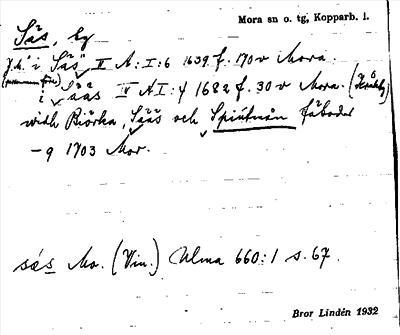 Mora sn o. tg, Kopparb. l.
Säs, by
J.h. i Säs" II A:I:6 1639 f. 170 v Mora.
i Sääs IV A I:4 1682 f. 30 v Mora.
widh Biörka, Sääs och Spiutnån fäboder
– 9 1703 Mor.
säs Mo. (Vin.) Ulma 660:1 s. 67.
Bror Lindén 1932